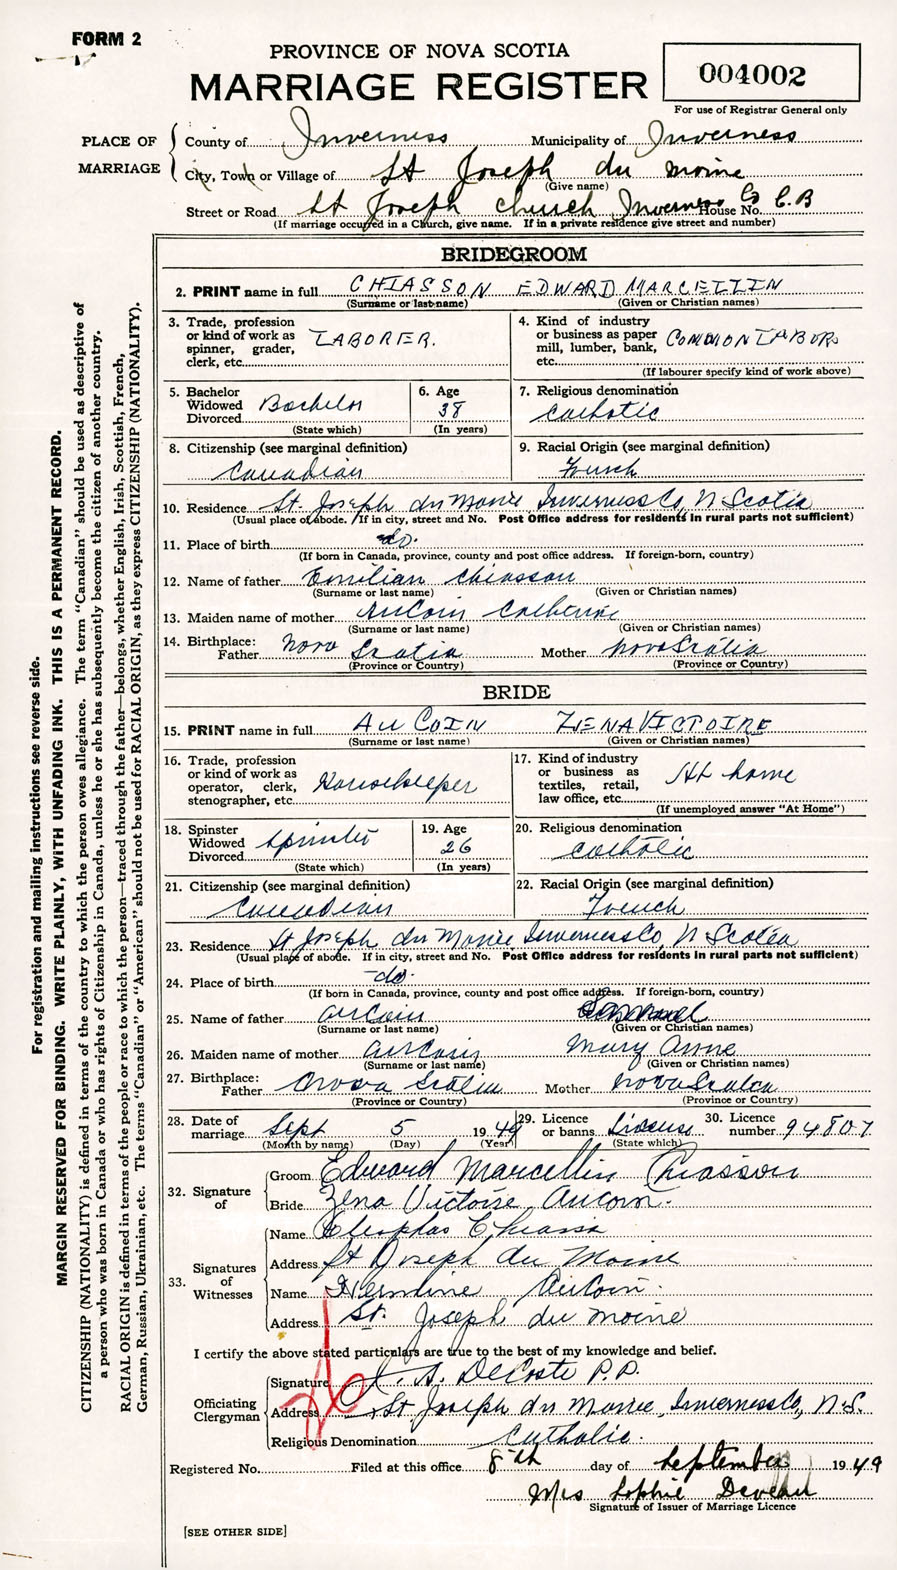 FORM 2
PROVINCE OF NOVA SCOTIA
MARRIAGE REGISTER
004002
For use of Registrar General only
PLACE OF MARRIAGE
County of Inverness Municipality of Inverness
City, Town or Village of St Joseph du Moine
(Give name)
Street or Road St Joseph church Inverness Co C.B House No.
(If marriage occurred in a Church, give name. If in a private residence give street and number)
BRIDEGROOM
2. PRINT name in full CHIASSON EDWARD MARCELLIN
(Surname or last name) (Given or Christian names)
3. Trade, profession or kind of work as spinner, grader, clerk, etc. LABORER.
4. Kind of industry or business as paper mill, lumber, bank, etc. COMMON LABOR
(If labourer specify kind of work above)
5. Bachelor Widowed Divorced Bachelor
(State which)
6. Age 38
(In years)
7. Religious denomination Catholic
8. Citizenship (see marginal definition) Canadian
9. Racial Origin (see marginal definition) French
10. Residence St. Joseph du Moine Inverness Co, N Scotia
(Usual place of abode. If in city, street and No. Post Office address for residents in rural parts not sufficient)
11. Place of birth do.
(If born in Canada, province, county and post office address. If foreign-born, country)
12. Name of father Emilian Chiasson
(Surname or last name) (Given or Christian names)
13. Maiden name of mother AuCoin Catherine
(Surname or last name) (Given or Christian names)
14. Birthplace: Father Nova Scotia Mother Nova Scotia
(Province or Country) (Province or Country)
BRIDE
15. PRINT name in full AU COIN ZENA VICTOIRE
(Surname or last name) (Given or Christian names)
16. Trade, profession or kind of work as operator, clerk, stenographer, etc. Housekeeper
17. Kind of industry or business as textiles, retail, law office, etc. At home
(If unemployed answer "At Home")
18. Spinster Widowed Divorced Spinster
(State which)
19. Age 26
(In years)
20. Religious denomination Catholic
21. Citizenship (see marginal definition) Canadian
22. Racial Origin (see marginal definition) French
23. Residence St Joseph du Moine Inverness Co, N Scotia
(Usual place of abode. If in city, street and No. Post Office address for residents in rural parts not sufficient)
24. Place of birth do.
(If born in Canada, province, county and post office address. If foreign-born, country)
25. Name of father AuCoin
(Surname or last name) (Given or Christian names)
26. Maiden name of mother AuCoin Mary Anne
(Surname or last name) (Given or Christian names)
27. Birthplace: Father Nova Scotia Mother Nova Scotia
(Province or Country) (Province or Country)
28. Date of marriage Sept 5 1949
(Month by name) (Day) (Year)
29. Licence or banns License
(State which)
30. Licence number 94807
32. Signature of
Groom Edward Marcellin Chiasson
Bride Zena Victoire Aucoin.
33. Signatures of Witnesses
Name Cleophas Chiasson
Address St Joseph du Moine
Name Hermine AuCoin.
Address St. Joseph du Moine
I certify the above stated particulars are true to the best of my knowledge and belief.
Officiating Clergyman
Signature A. DeCoste P.P.
Address St Joseph du Moine, Inverness Co, N.S.
Religious Denomination Catholic.
Registered No. Filed at this office 8th day of September 1949
Mrs Sophie Deveau
Signature of Issuer of Marriage Licence
[SEE OTHER SIDE]
For registration and mailing instructions see reverse side.
MARGIN RESERVED FOR BINDING. WRITE PLAINLY, WITH UNFADING INK. THIS IS A PERMANENT RECORD.
CITIZENSHIP (NATIONALITY) is defined in terms of the country to which the person owes allegiance. The term "Canadian" should be used as descriptive of
a person who was born in Canada or who has rights of Citizenship in Canada, unless he or she has subsequently become the citizen of another country.
RACIAL ORIGIN is defined in terms of the people or race to which the person—traced through the father—belongs, whether English, Irish, Scottish, French,
German, Russian, Ukrainian, etc. The terms "Canadian" or "American" should not be used for RACIAL ORIGIN, as they express CITIZENSHIP (NATIONALITY).